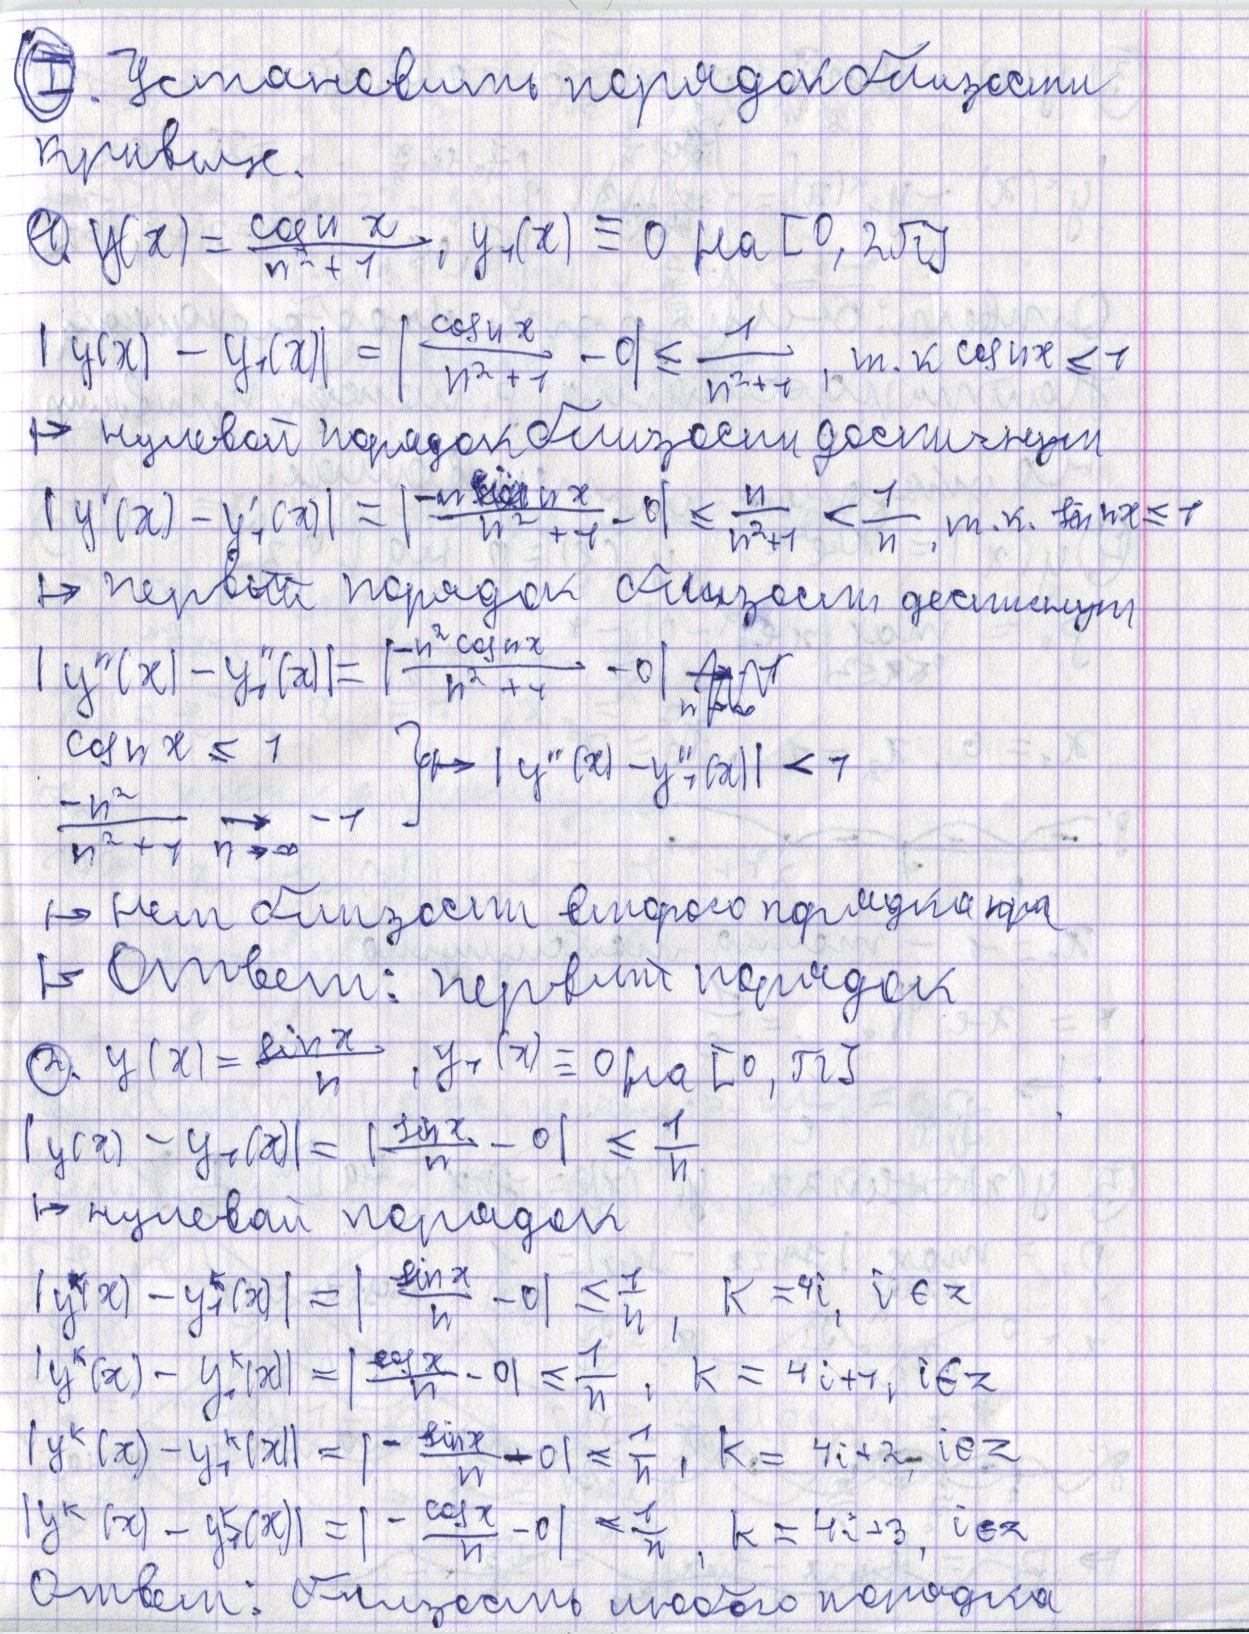 I. Установить порядок близости
кривых.
1. y(x) = cos nx / (n² + 1), y₁(x) ≡ 0 на [0, 2π]
|y(x) − y₁(x)| = |cos nx / (n² + 1) − 0| ≤ 1 / (n² + 1), т.к cos nx ≤ 1
↦ нулевой порядок близости достигнут
|y'(x) − y₁'(x)| = |−n sin nx / (n² + 1) − 0| ≤ n / (n² + 1) < 1/n, т.к. sin nx ≤ 1
↦ первый порядок близости достигнут
|y''(x) − y₁''(x)| = |−n² cos nx / (n² + 1) − 0|
cos nx ≤ 1
−n² / (n² + 1) → −1, n→∞ } ↦ |y''(x) − y₁''(x)| < 1
↦ нет близости второго порядка
↦ Ответ: первый порядок
2. y(x) = sin x / n, y₁(x) ≡ 0 на [0, π]
|y(x) − y₁(x)| = |sin x / n − 0| ≤ 1/n
↦ нулевой порядок
|yᵏ(x) − y₁ᵏ(x)| = |sin x / n − 0| ≤ 1/n, k = 4i, i ∈ z
|yᵏ(x) − y₁ᵏ(x)| = |cos x / n − 0| ≤ 1/n, k = 4i+1, i ∈ z
|yᵏ(x) − y₁ᵏ(x)| = |− sin x / n − 0| ≤ 1/n, k = 4i+2, i ∈ z
|yᵏ(x) − y₁ᵏ(x)| = |− cos x / n − 0| ≤ 1/n, k = 4i+3, i ∈ z
Ответ: близость любого порядка